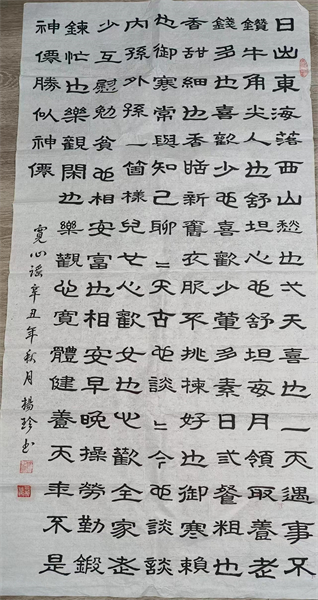 日出東海落西山愁也弌天喜也一天遇事不
鑽牛角尖人也舒坦心也舒坦每月領取養老
錢多也喜歡少也喜歡少葷多素日弎餐粗也
香甜細也香甛新舊衣服不挑揀好也御寒賴
也御寒常與知己聊〻天古也談〻今也談談
內孫外孫一箇樣兒也心歡女也心歡全家老
少互慰勉貧也相安富也相安早晚操勞勤鍛
鍊忙也樂觀閑也樂觀心寬體健養天年不是
神僊勝似神僊
寬心謠辛丑年秋月楊珍書